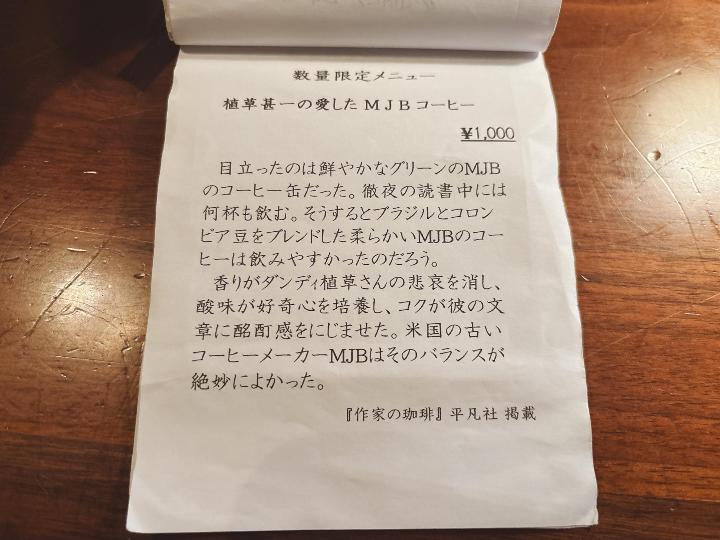 数量限定メニュー
植草甚一の愛したMJBコーヒー
¥1,000
目立ったのは鮮やかなグリーンのMJB
のコーヒー缶だった。徹夜の読書中には
何杯も飲む。そうするとブラジルとコロン
ビア豆をブレンドした柔らかいMJBのコー
ヒーは飲みやすかったのだろう。
香りがダンディ植草さんの悲哀を消し、
酸味が好奇心を培養し、コクが彼の文
章に酩酊感をにじませた。米国の古い
コーヒーメーカーMJBはそのバランスが
絶妙によかった。
『作家の珈琲』平凡社 掲載